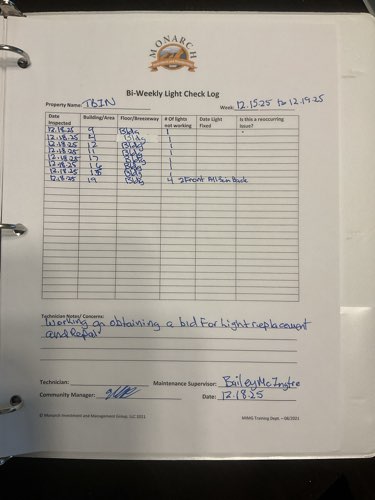 MONARCH
Bi-Weekly Light Check Log
Property Name: TBIN Week: 12.15.25 to 12.19.25
Date Inspected Building/Area Floor/Breezeway # Of lights not working Date Light Fixed Is this a reoccurring issue?
12.18.25 9 Bldg 1
12.18.25 4 Bldg 1
12.18.25 12 Bldg 1
12.18.25 11 Bldg 1
12.18.25 17 Bldg 1
12.18.25 16 Bldg 1
12.18.25 Bldg 1
12.18.25 19 Bldg 4 2 Front All 5 in Back
Technician Notes/ Concerns:
Working on obtaining a bid for light replacement
and Repair
Technician: Maintenance Supervisor: Bailey McIntyre
Community Manager: Date: 12.18.25
© Monarch Investment and Management Group, LLC 2021 MIMG Training Dept. – 08/2021